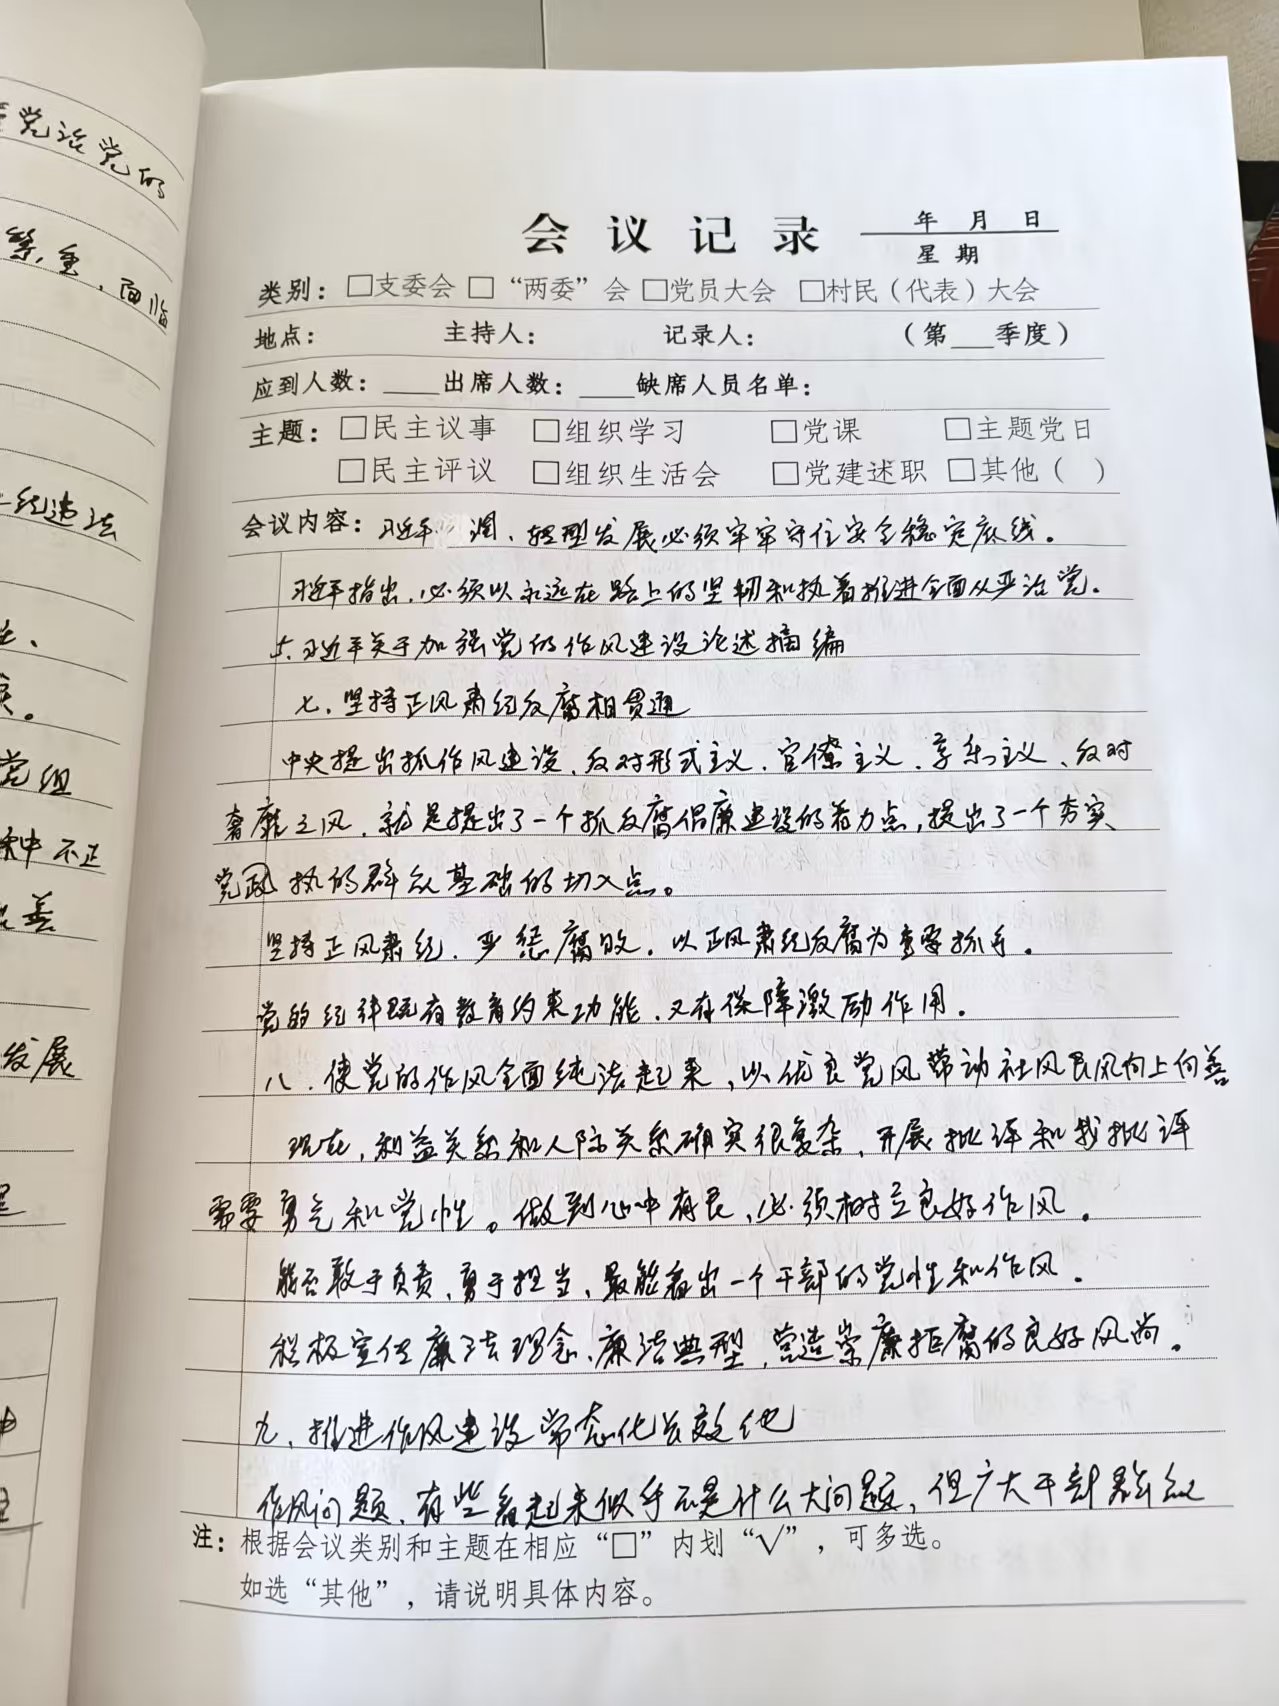 党治党的
繁重,面临
纪违法
党组
不正
善
发展
会议记录 年 月 日
星期
类别:□支委会 □“两委”会 □党员大会 □村民(代表)大会
地点: 主持人: 记录人: (第___季度)
应到人数:____出席人数:____缺席人员名单:
主题:□民主议事 □组织学习 □党课 □主题党日
□民主评议 □组织生活会 □党建述职 □其他( )
会议内容:习近平 调、转型发展必须牢牢守住安全稳定底线。
习近平指出,必须以永远在路上的坚韧和执着推进全面从严治党。
六、习近平关于加强党的作风建设论述摘编
七、坚持正风肃纪反腐相贯通
中央提出抓作风建设、反对形式主义、官僚主义、享乐主义、反对
奢靡之风,就是提出了一个抓反腐倡廉建设的着力点,提出了一个夯实
党政执的群众基础的切入点。
坚持正风肃纪、严惩腐败,以正风肃纪反腐为重要抓手。
党的纪律既有教育约束功能,又有保障激励作用。
八、使党的作风全面纯洁起来,以优良党风带动社风民风向上向善
现在,利益关系和人际关系确实很复杂,开展批评和我批评
需要勇气和党性。做到心中有民,必须树立良好作风。
能否敢于负责,勇于担当,最能看出一个干部的党性和作风。
积极宣传廉洁理念、廉洁典型,营造崇廉拒腐的良好风尚。
九、推进作风建设常态化长效化
作风问题,有些看起来似乎不是什么大问题,但广大干部群众
注:根据会议类别和主题在相应“□”内划“√”,可多选。
如选“其他”,请说明具体内容。